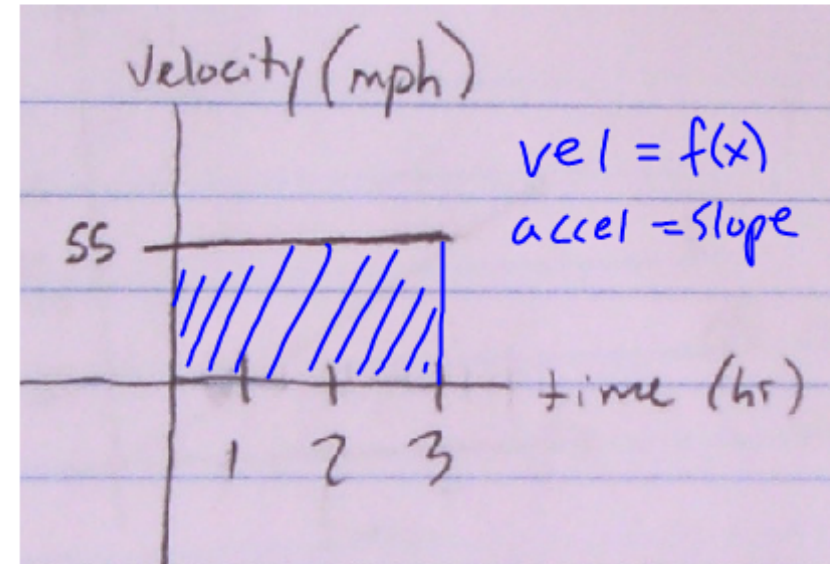 Velocity (mph)
vel = f(x)
accel = slope
55
time (hr)
1 2 3